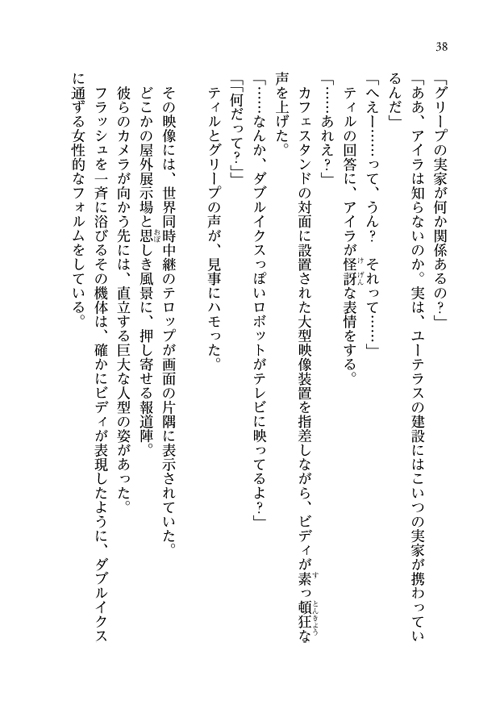 38
「グリープの実家が何か関係あるの？」
「ああ、アイラは知らないのか。実は、ユーテラスの建設にはこいつの実家が携わってい
るんだ」
「へえー……って、うん？　それって……」
ティルの回答に、アイラが怪訝な表情をする。
「……あれえ？」
カフェスタンドの対面に設置された大型映像装置を指差しながら、ビディが素っ頓狂な
声を上げた。
「……なんか、ダブルイクスっぽいロボットがテレビに映ってるよ？」
「「何だって？」」
ティルとグリープの声が、見事にハモった。
その映像には、世界同時中継のテロップが画面の片隅に表示されていた。
どこかの屋外展示場と思しき風景に、押し寄せる報道陣。
彼らのカメラが向かう先には、直立する巨大な人型の姿があった。
フラッシュを一斉に浴びるその機体は、確かにビディが表現したように、ダブルイクス
に通ずる女性的なフォルムをしている。